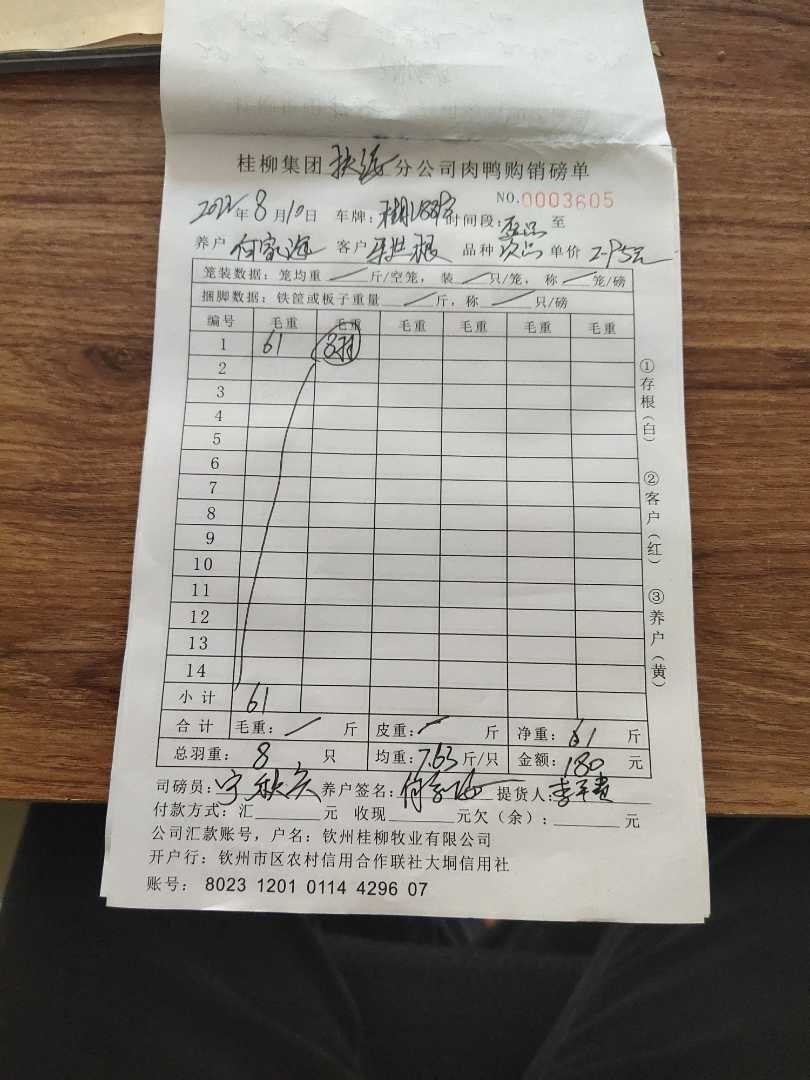 桂柳集团 分公司肉鸭购销磅单
NO.0003605
年8月10日 车牌: 时间段: 至
养户 何家 客户 品种 次品 单价 2.95元
笼装数据: 笼均重 斤/空笼, 装 只/笼, 称 笼/磅
捆脚数据: 铁筐或板子重量 斤, 称 只/磅
编号 毛重 毛重 毛重 毛重 毛重 毛重
1 61 8
2
3
4
5
6
7
8
9
10
11
12
13
14
小计 61
合计 毛重: 斤 皮重: 斤 净重: 61 斤
总羽重: 8 只 均重: 7.63 斤/只 金额: 180 元
司磅员: 养户签名: 提货人: 李平贵
付款方式: 汇 元 收现 元欠(余): 元
公司汇款账号, 户名: 钦州桂柳牧业有限公司
开户行: 钦州市区农村信用合作联社大垌信用社
账号: 8023 1201 0114 4296 07
①存根(白)
②客户(红)
③养户(黄)